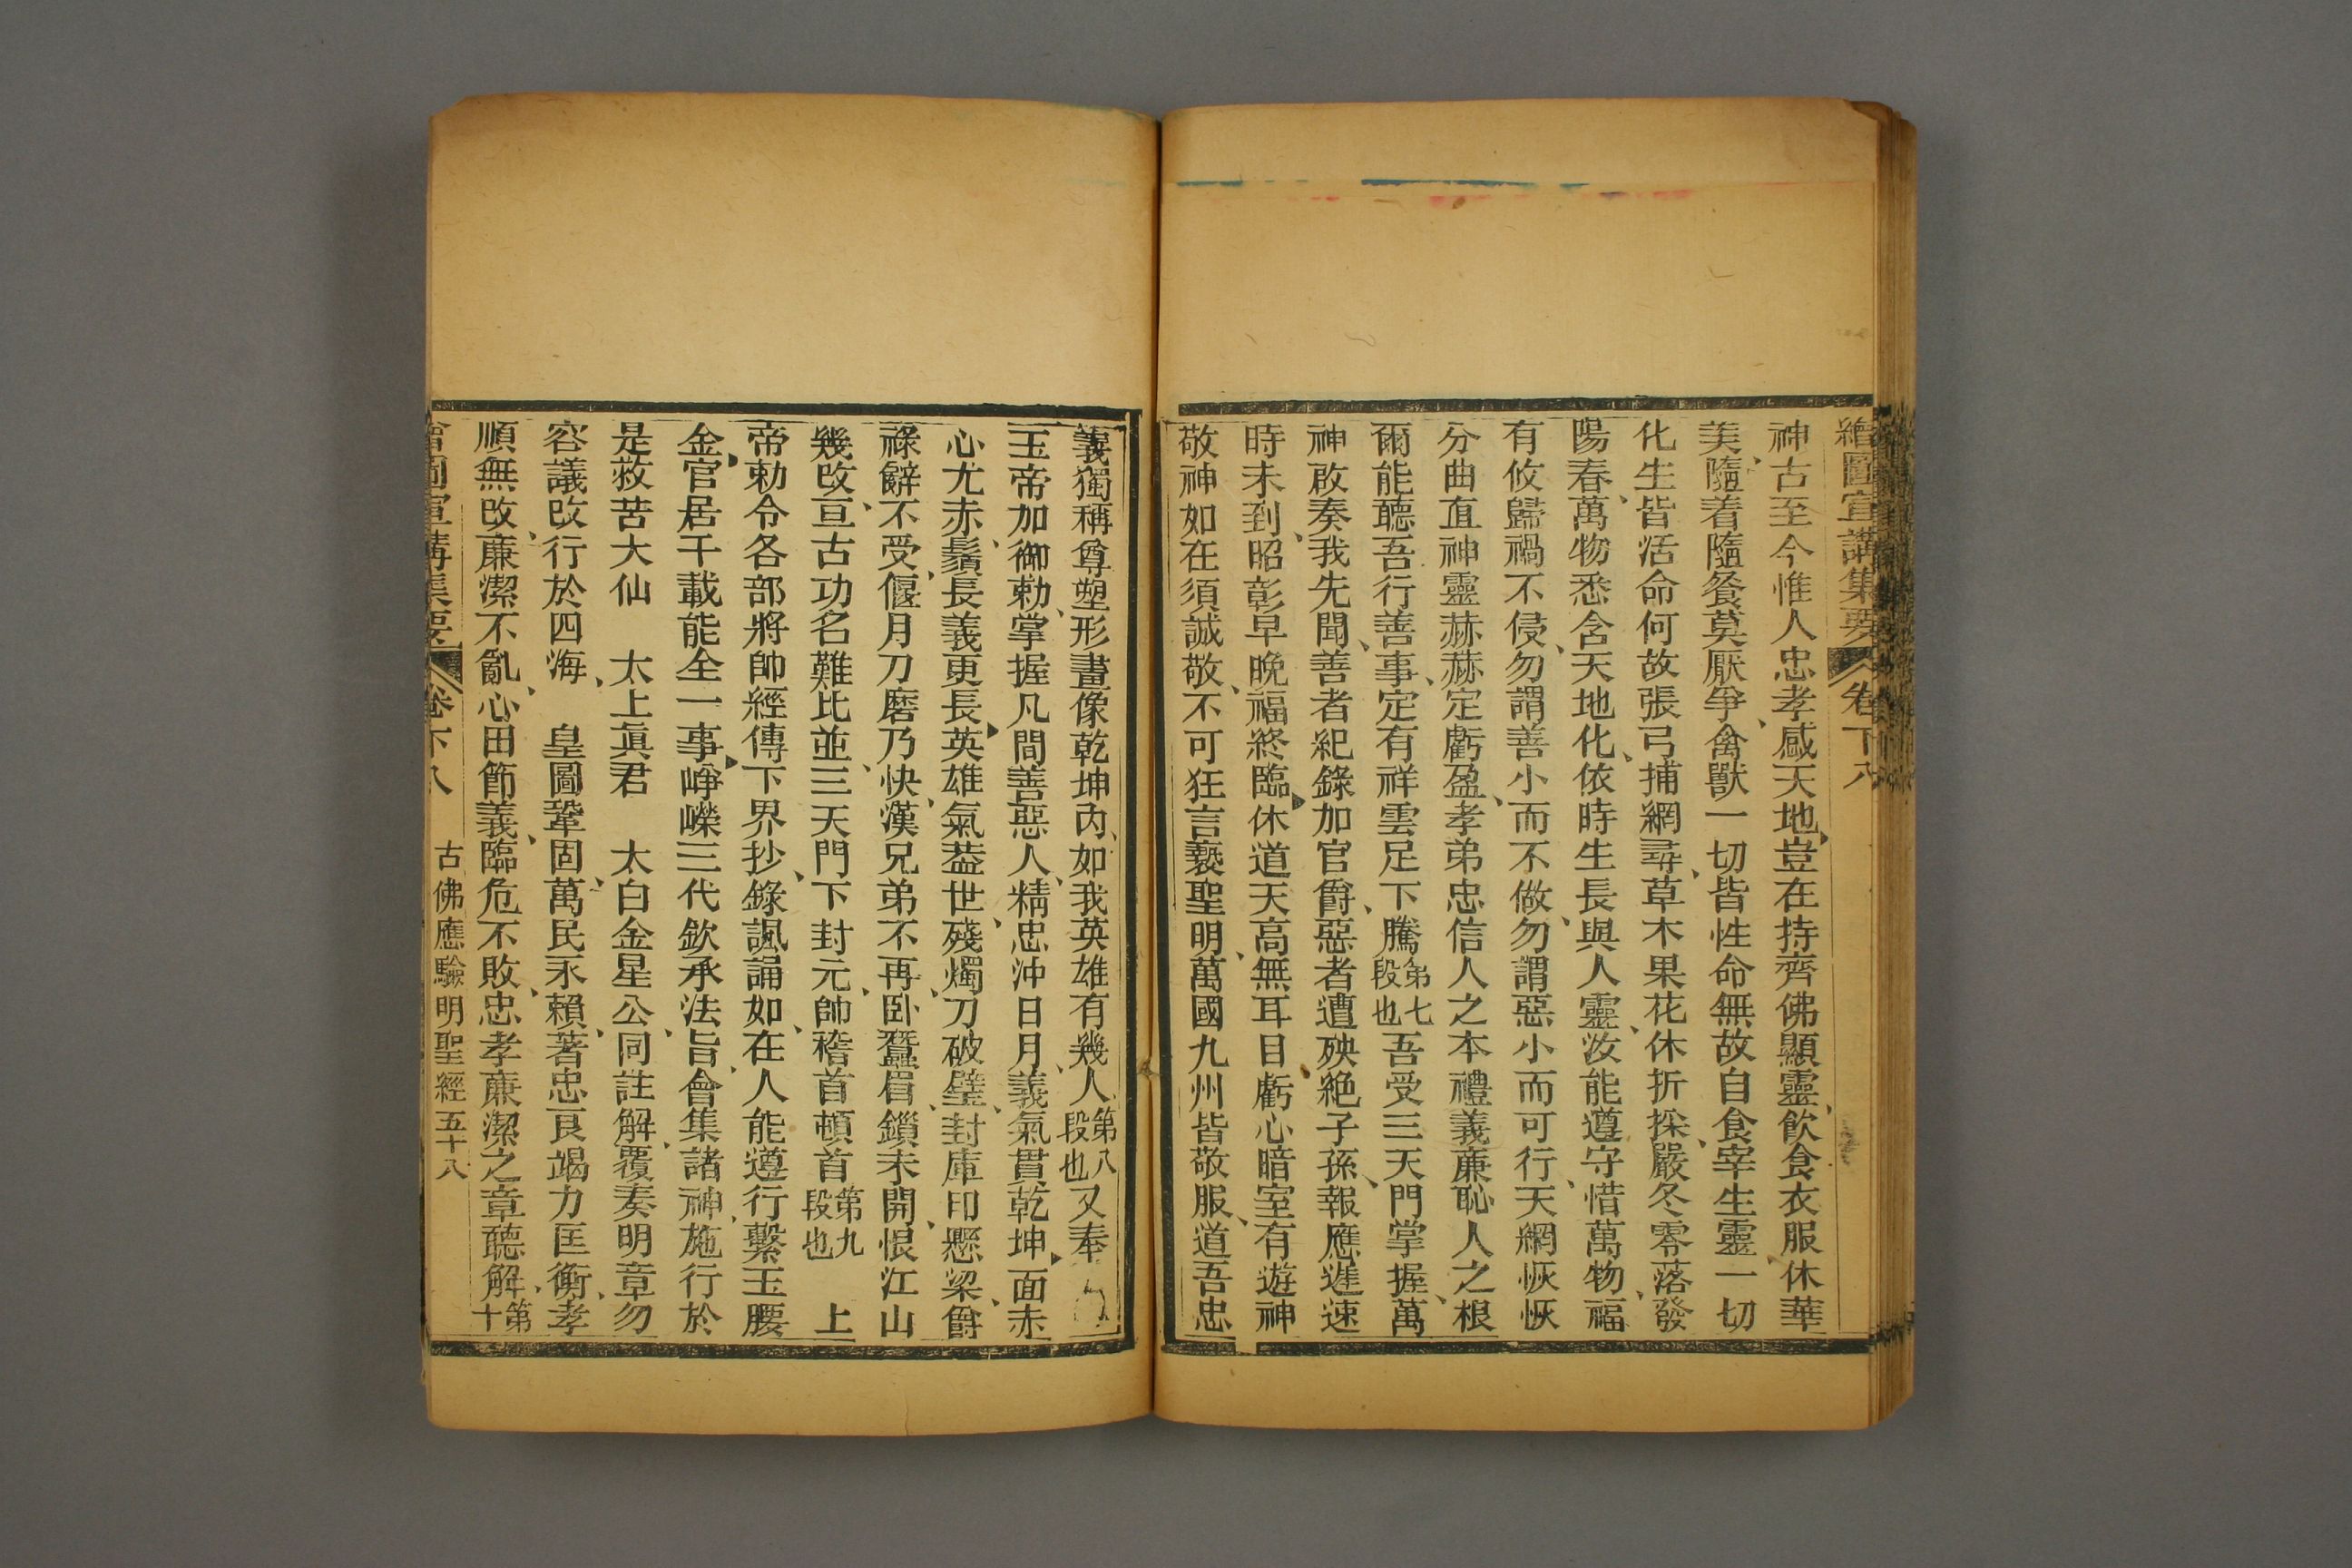 繪圖宣講集要 卷下八
神古至今惟人忠孝感天地豈在持齊佛顯靈飲食衣服休華
美隨着隨餐莫厭爭禽獸一切皆性命無故自食宰生靈一切
化生皆活命何故張弓捕網尋草木果花休折採嚴冬零落發
陽春萬物悉含天地化依時生長與人靈汝能遵守惜萬物福
有攸歸禍不侵勿謂善小而不做勿謂惡小而可行天網恢恢
分曲直神靈赫赫定虧盈孝弟忠信人之本禮義廉恥人之根
爾能聽吾行善事定有祥雲足下騰第七段也吾受三天門掌握萬
神啟奏我先聞善者紀錄加官爵惡者遭殃絕子孫報應遲速
時未到昭彰早晚福終臨休道天高無耳目虧心暗室有遊神
敬神如在須誠敬不可狂言褻聖明萬國九州皆敬服道吾忠
義獨稱尊塑形畫像乾坤內如我英雄有幾人第八段也又奉
玉帝加御勅掌握凡間善惡人精忠沖日月義氣貫乾坤面赤
心尤赤鬚長義更長英雄氣蓋世殘燭刀破璧封庫印懸梁爵
祿辭不受偃月刀磨乃快漢兄弟不再臥蠶眉鎖未開恨江山
幾改亘古功名難比並三天門下封元帥稽首頓首第九段也 上
帝勅令各部將帥經傳下界抄錄諷誦如在人能遵行繫玉腰
金官居千載能全一事崢嶸三代欽承法旨會集諸神施行於
是救苦大仙 太上眞君 太白金星公同註解覆奏明章勿
容議改行於四海 皇圖鞏固萬民永賴著忠良竭力匡衡孝
順無改廉潔不亂心田節義臨危不敗忠孝廉潔之章聽解第十
會圖宣講集要 卷下八 古佛應驗明聖經 五十八